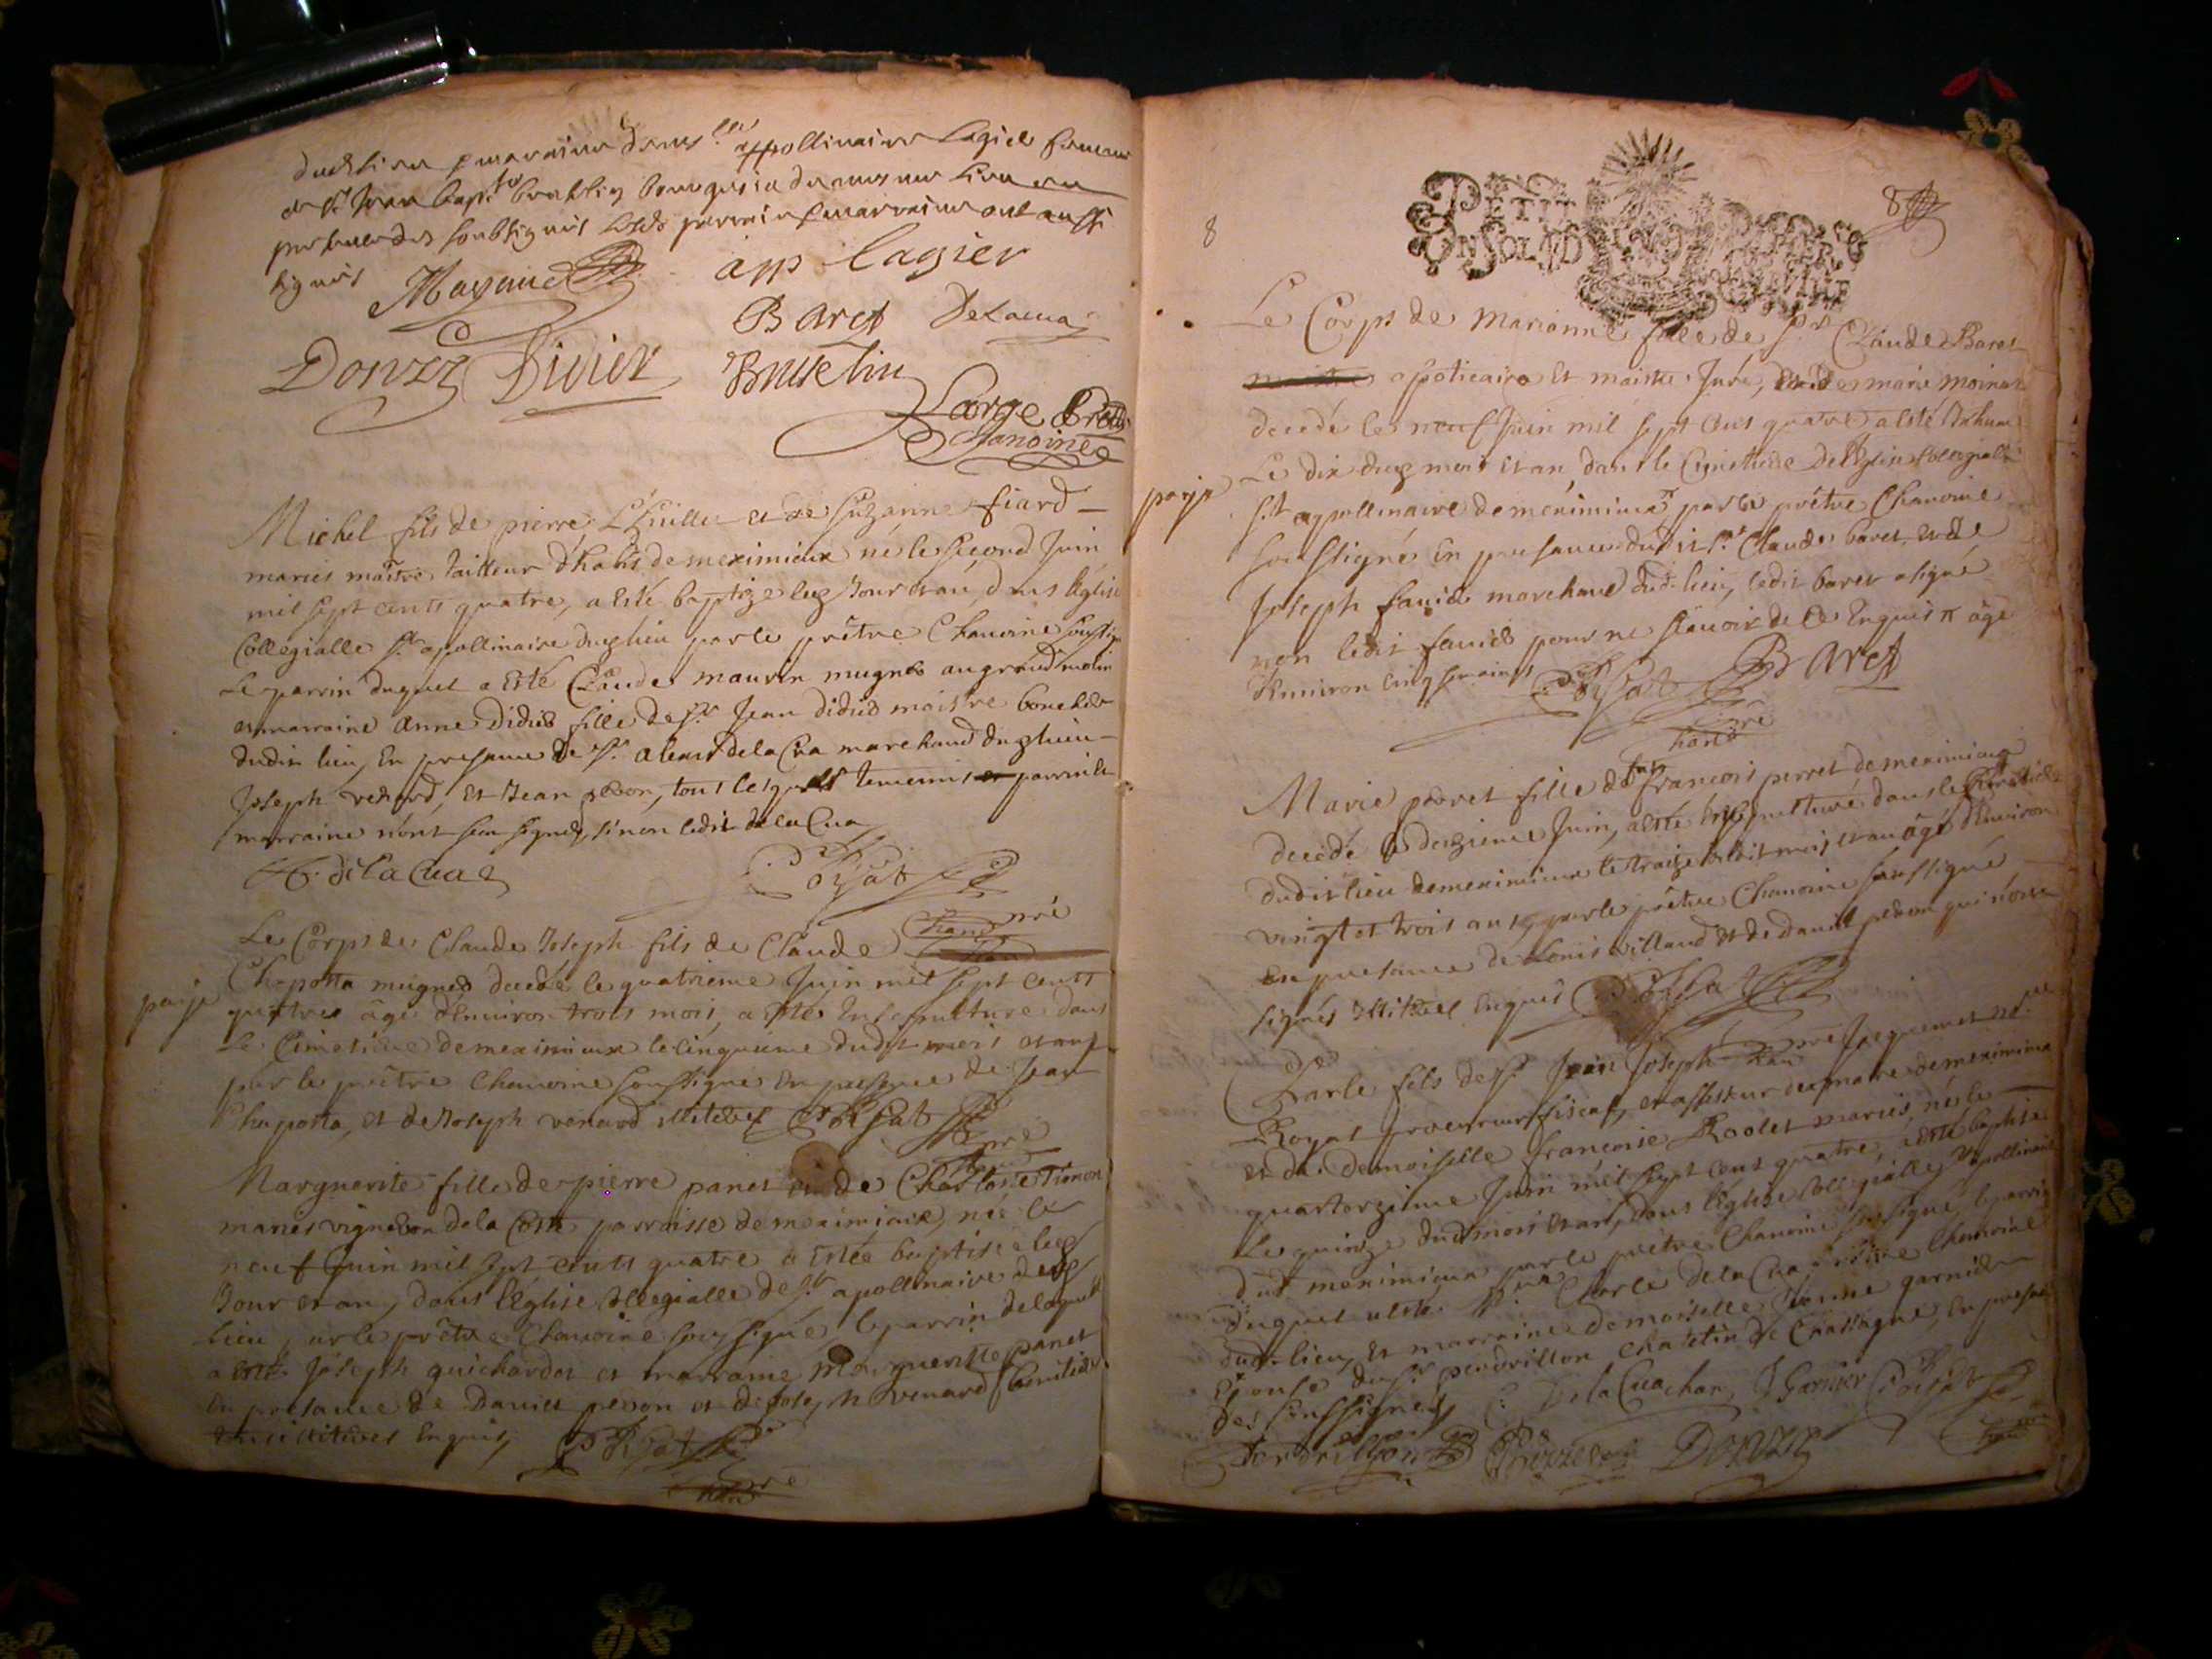 dud lieu & marraine dam.lle appollinaire Lagier femme
de Sr Jean bapt.te bruslin bourgeois du mesme lieu en
presence des soubsignés lesd. parrain & marraine ont aussi
signés
Mayaud app lagier
Baret Delacua
Donzy Didier Bruselin
Large Chanoine
Michel fils de pierre Lhuillier et de Suzanne fiard
mariés maître tailleur d'habis de meximieux né le second Juin
mil sept cents quatre, a esté baptizé lesd Jour et an, dans l'église
Collegialle St apollinaire dud lieu par le prêtre Chanoine soussigné
Le parrin duquel a esté Claude maurin mugnié au grand moulin
et marraine anne Didier fille de Sr Jean didier maistre boucher
dudit lieu, En presence de Sr alexis delaCua marchand dud lieu
Joseph venard, et Jean pedon, tous lesquels temoins parrin et
marraine n'ont sceu signer, sinon ledit delaCua
A. delaCua Poisat
pre
Chan
Le Corps de Claude Joseph fils de Claude
Chaposta mugnié decedé le quatrieme Juin mil sept cents
paye quattre âgé d'environ trois mois, a estés Ensepulturé dans
Le Cimetiere de meximieux le cinquieme dudit mois et an
par le prêtre Chanoine soussigné En presence de Jean
Chaposta, et de Joseph venard illiteres Poisat
pre
Marguerite fille de pierre panet et de Charlotte Timon
mariés vigneron de la Coste parroisse de meximieux, née le
neuf Juin mil sept cents quatre a estée baptisée lesd
Jour et an, dans l'église Collegialle de St apollinaire dud
Lieu, par le prêtre Chanoine soussigné, le parrin delaquelle
a esté Joseph guichardot et marraine Marguerite panet
En presence de Daniel pedon et de Joseph venard
illiteres Enquis, Poisat
pre
8 PETIT PAPIER
UN SOL 8
Le Corps de Marianne fille de Sr Claude Baret
apoticaire et maistre Juré, et de marie moinat
decedé le neuf Juin mil sept cens quatre a esté Inhumé
Le dix dud mois et an, dans le Cimetiere De l'Eglise Collegialle
paye St appollinaire de meximieux par le prêtre Chanoine
soussigné En presence dudit Sr Claude baret, et de
Joseph favier marchand dud. lieu, ledit baret a signé
non ledit favier pour ne sçavoir de ce Enquis âgé
d'Environ cinq semaines Poisat Baret
pre
chan
Marie perret fille de francois perret de meximieux
decedé le douzieme Juin, a esté Ensepulturé dans le Cimetiere
dudit lieu de meximieux le traize dudit mois et an âgé d'Environ
vingt et trois ans, par le prêtre Chanoine soussigné
En presence de Louis villand et de Daniel pedon qui n'ont
signés illiteres Enquis Poisat
pre
Charle fils de Sr Jean Joseph Jacquemet no.re
Royal procureur fiscal, et assesseur du maire de meximieux
et de Demoiselle francoise Rodet mariés, né le
quartorzieme Juin mil sept cens quatre, a esté baptisé
Le quinze dud mois et an, dans l'église Collegialle St apollinaire
dud meximieux par le prêtre Chanoine soussigné, le parrin
duquel a esté Charle delaCua prêtre Chanoine
dud. lieu, et marraine demoiselle garnier
Epouse du Sr perdrillon Chastelin de Chassagne, En presence
des soussignés C DelaCua chan. J Garnier Poisat
Perdrillon Donzy